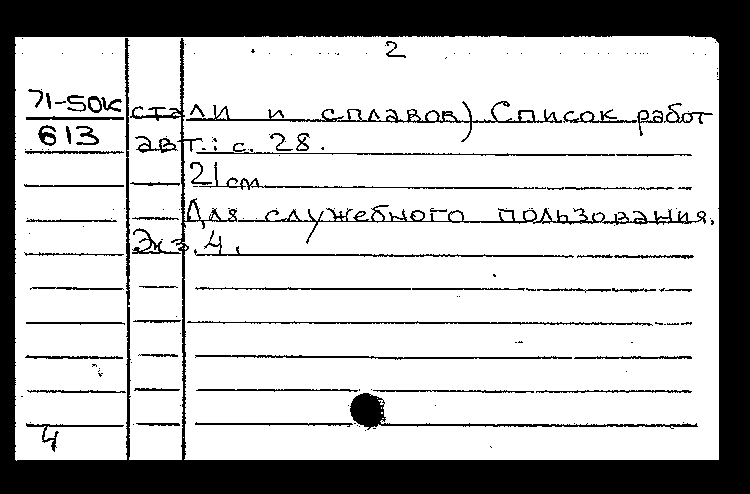 2
71-50к стали и сплавов) Список работ
613 авт.: с. 28.
21 см
Для служебного пользования.
Экз. 4.
4